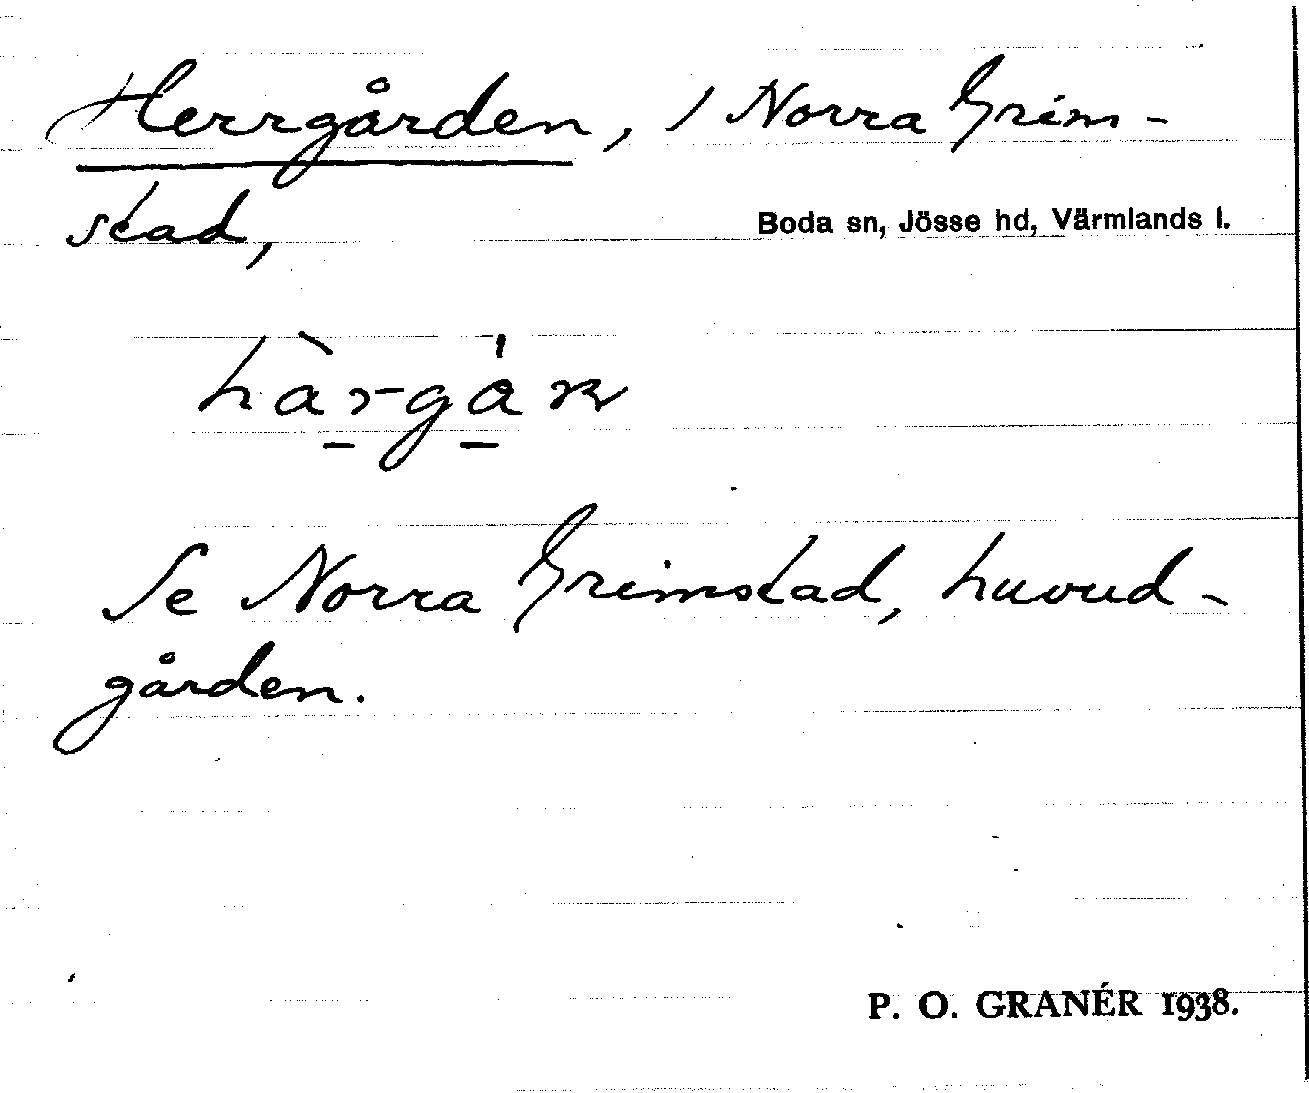 Herrgården, / Norra Grim-
stad,
Boda sn, Jösse hd, Värmlands l.
hàrgán
Se Norra Grimstad, huvud-
gården.
P. O. GRANÉR 1938.